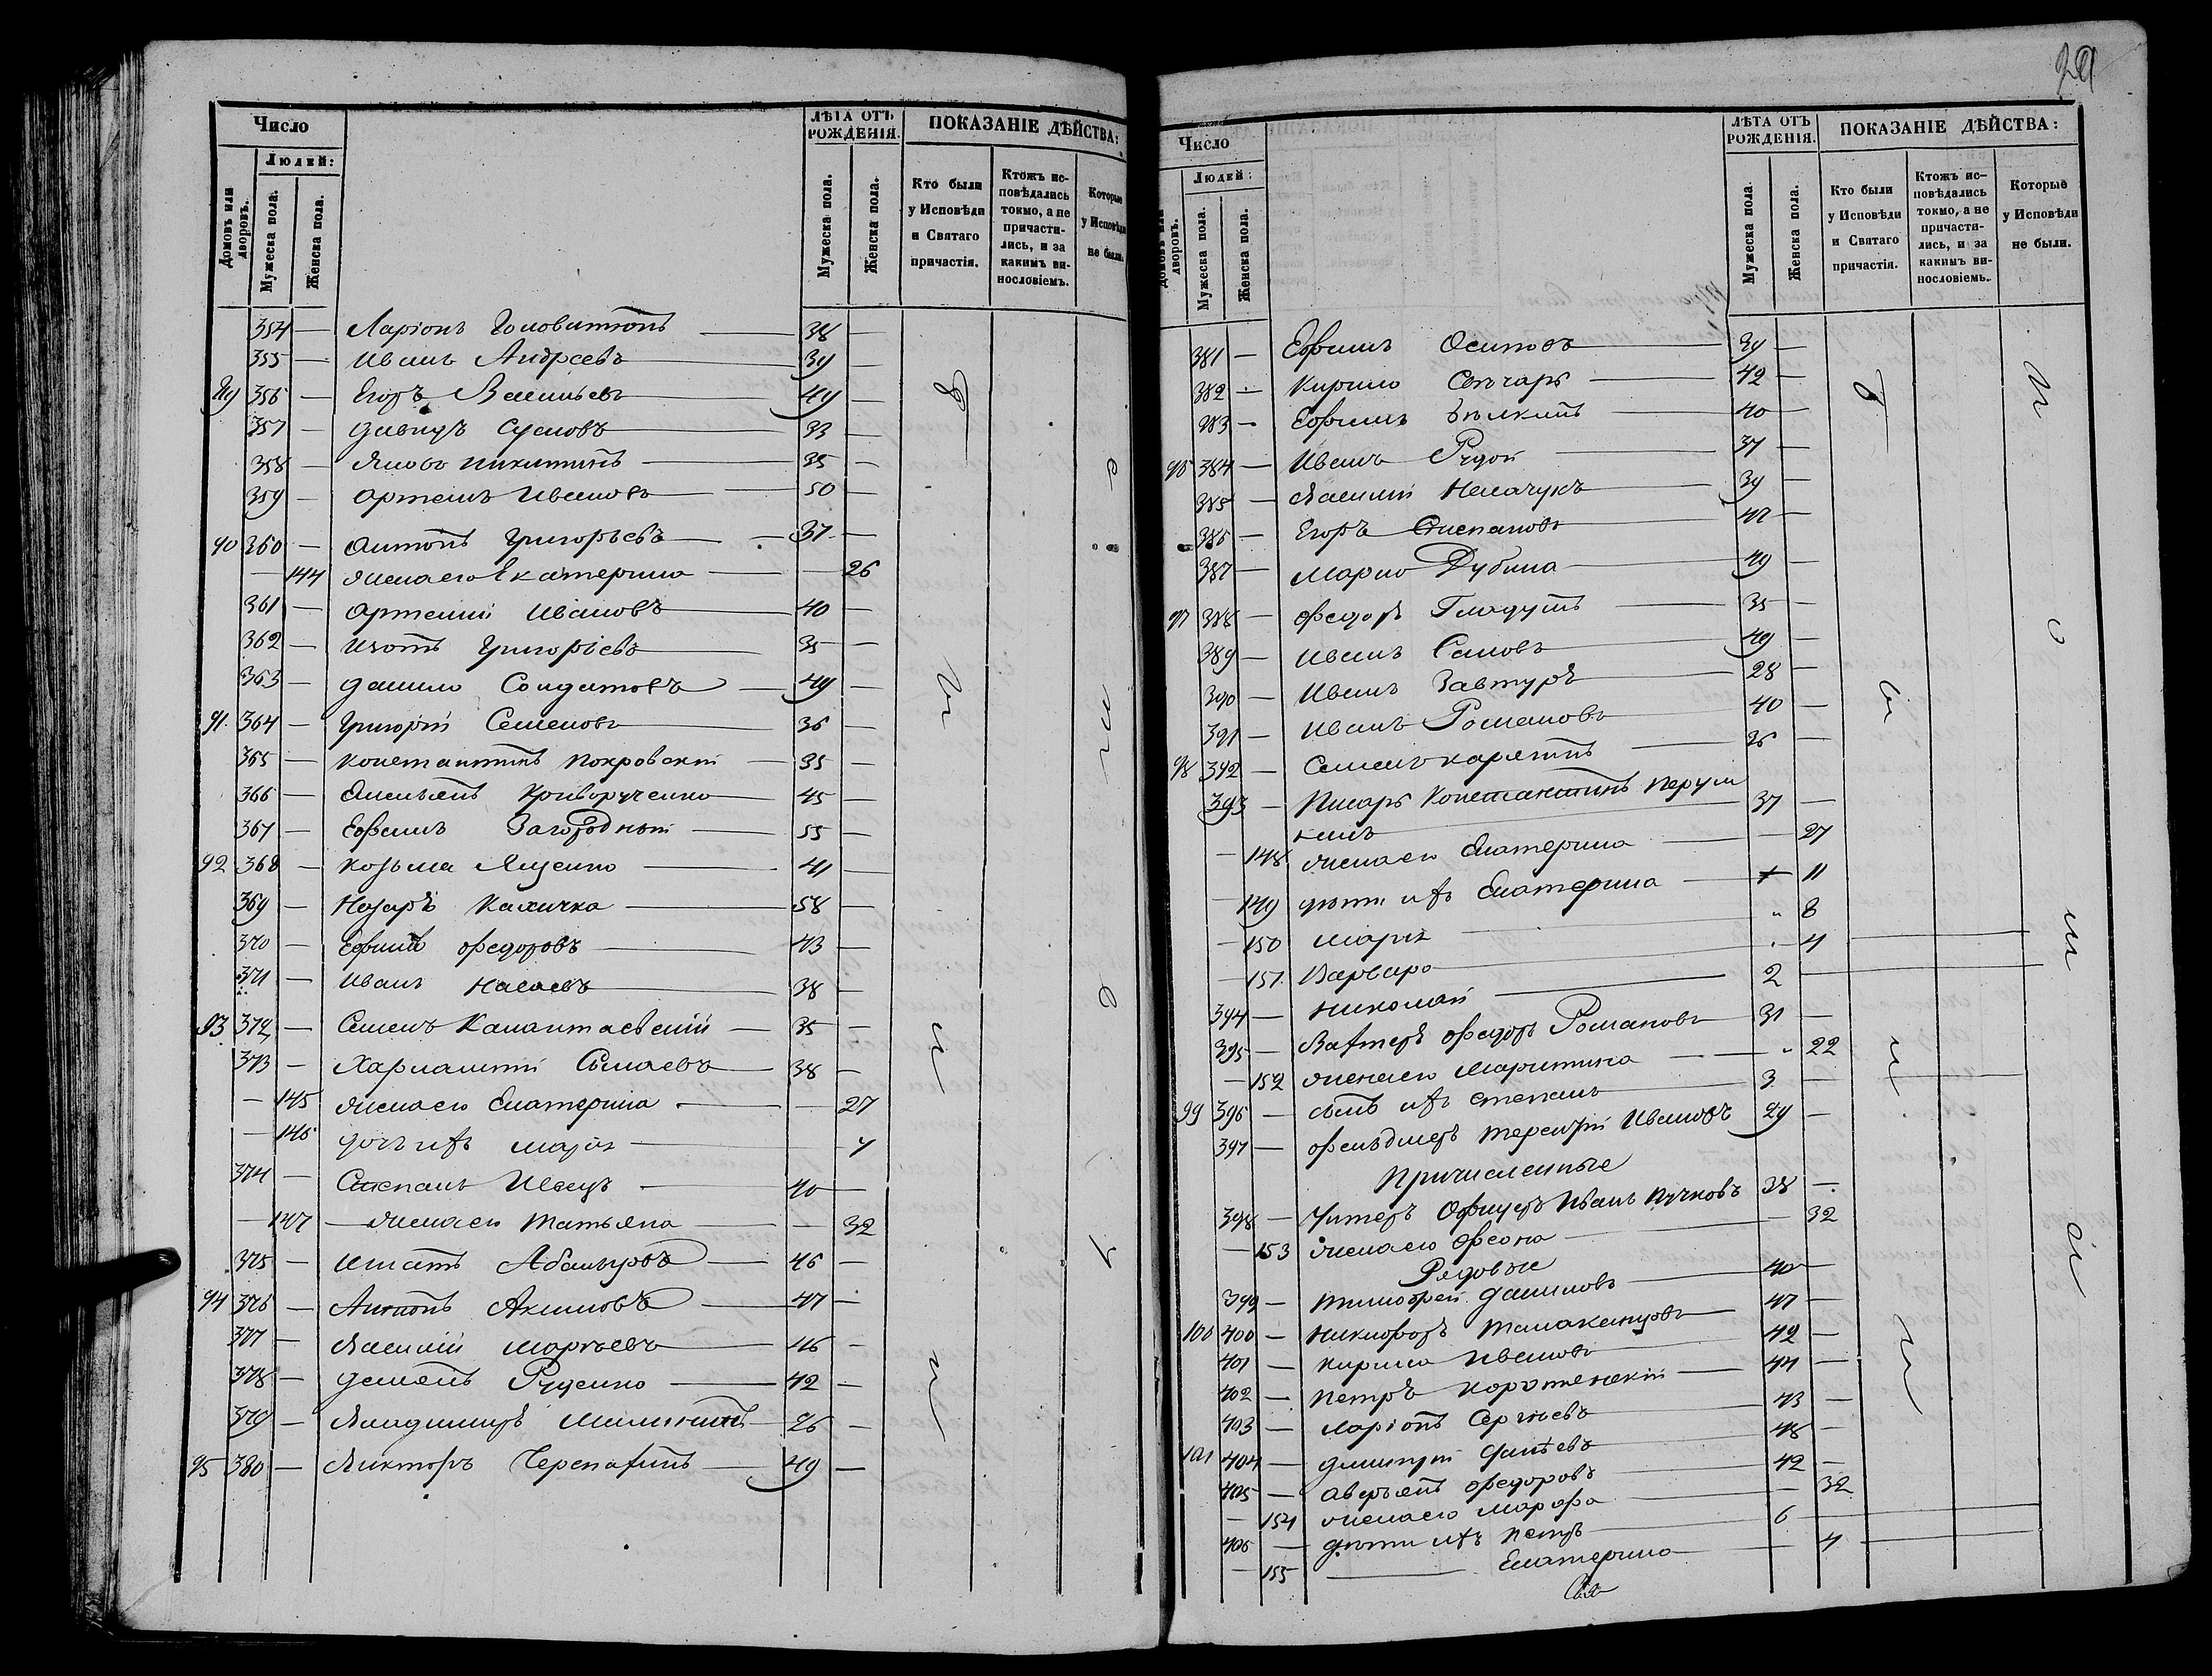 29
Число
Людей:
Домовъ или дворовъ.
Мужеска пола.
Женска пола.
ЛѢТА ОТЪ РОЖДЕНІЯ.
Мужеска пола.
Женска пола.
ПОКАЗАНІЕ ДѢЙСТВА:
Кто были у Исповѣди и Святаго причастія.
Ктожъ исповѣдались токмо, а не причастились, и за какимъ винословіемъ.
Которые у Исповѣди не были.
354 — Ларіонъ 38 —
355 — Иванъ Андреевъ 39 —
89 356 — Егоръ Васильевъ 49 —
357 — Давидъ Сусловъ 33 —
358 — Яковъ Никитинъ 35 —
359 — Артемъ Ивановъ 50 —
90 360 — Антонъ Григорьевъ 37 —
— 144 жена его Екатерина — 26
361 — Артемій Ивановъ 40 —
362 — Изотъ Григорьевъ 35 —
363 — Данило Солдатовъ 49 —
91 364 — Григорій Семеновъ 36 —
365 — Константинъ Покровскій 35 —
366 — Емельянъ Криворученко 45 —
367 — Ефимъ Загородный 55 —
92 368 — Козьма Яценко 41 —
369 — Назаръ 58 —
370 — Ефимъ Федоровъ 43 —
371 — Иванъ 38 —
93 372 — Семенъ Калантаевскій 35 —
373 — Харлампій 38 —
— 145 жена его Екатерина — 27
— 146 дочь ихъ Марія 4
374 — Степанъ Швецъ 40 —
— 147 — жена его Татьяна — 32
375 — Игнатъ 46 —
94 376 — Антонъ Акимовъ 47 —
377 — Василій 46 —
378 — Демьянъ Руденко 42 —
379 — Владимиръ 26 —
95 380 — Викторъ Черепахинъ 49 —
Число
Людей:
Домовъ или дворовъ.
Мужеска пола.
Женска пола.
ЛѢТА ОТЪ РОЖДЕНІЯ.
Мужеска пола.
Женска пола.
ПОКАЗАНІЕ ДѢЙСТВА:
Кто были у Исповѣди и Святаго причастія.
Ктожъ исповѣдались токмо, а не причастились, и за какимъ винословіемъ.
Которые у Исповѣди не были.
381 — Ефимъ Осиповъ 39 —
382 — Кирило 42 —
383 — Ефимъ Бѣлкинъ 40 —
384 — Иванъ Рудой 37 —
385 — Василій 39 —
386 — Егоръ Степановъ 42 —
387 — Марко Дубина 49 —
97 388 — Федоръ 35 —
389 — Иванъ 49 —
390 — Иванъ Завтуръ 28 —
391 — Иванъ Романовъ 40 —
98 392 — Семенъ Карягинъ 36 —
393 — Писарь Константинъ 37 —
— 148 жена его Екатерина — 27
— 149 дѣти ихъ Екатерина 11
— 150 Марія 8
— 151 Варвара 4
394 — Николай 2
395 — Вахтеръ Федоръ Романовъ 31 —
— 152 жена его 22
99 396 — сынъ ихъ Степанъ 3 —
397 — Фельдшеръ Терентій Ивановъ 29 —
Причисленные
398 — Унтеръ Офицеръ Иванъ Пучковъ 38 —
— 153 жена его — 32
Рядовые
399 — Тимофей Даниловъ 40 —
100 400 — Никифоръ 47 —
401 — Кирило Ивановъ 42 —
402 — Петръ 44 —
403 — Ларіонъ Сергѣевъ 43 —
101 404 — Дмитрій 48 —
405 — Аверьянъ Федоровъ 42 —
— 154 жена его Марфа — 32
406 — дѣти ихъ Петръ 6
— 155 — Екатерина — 4